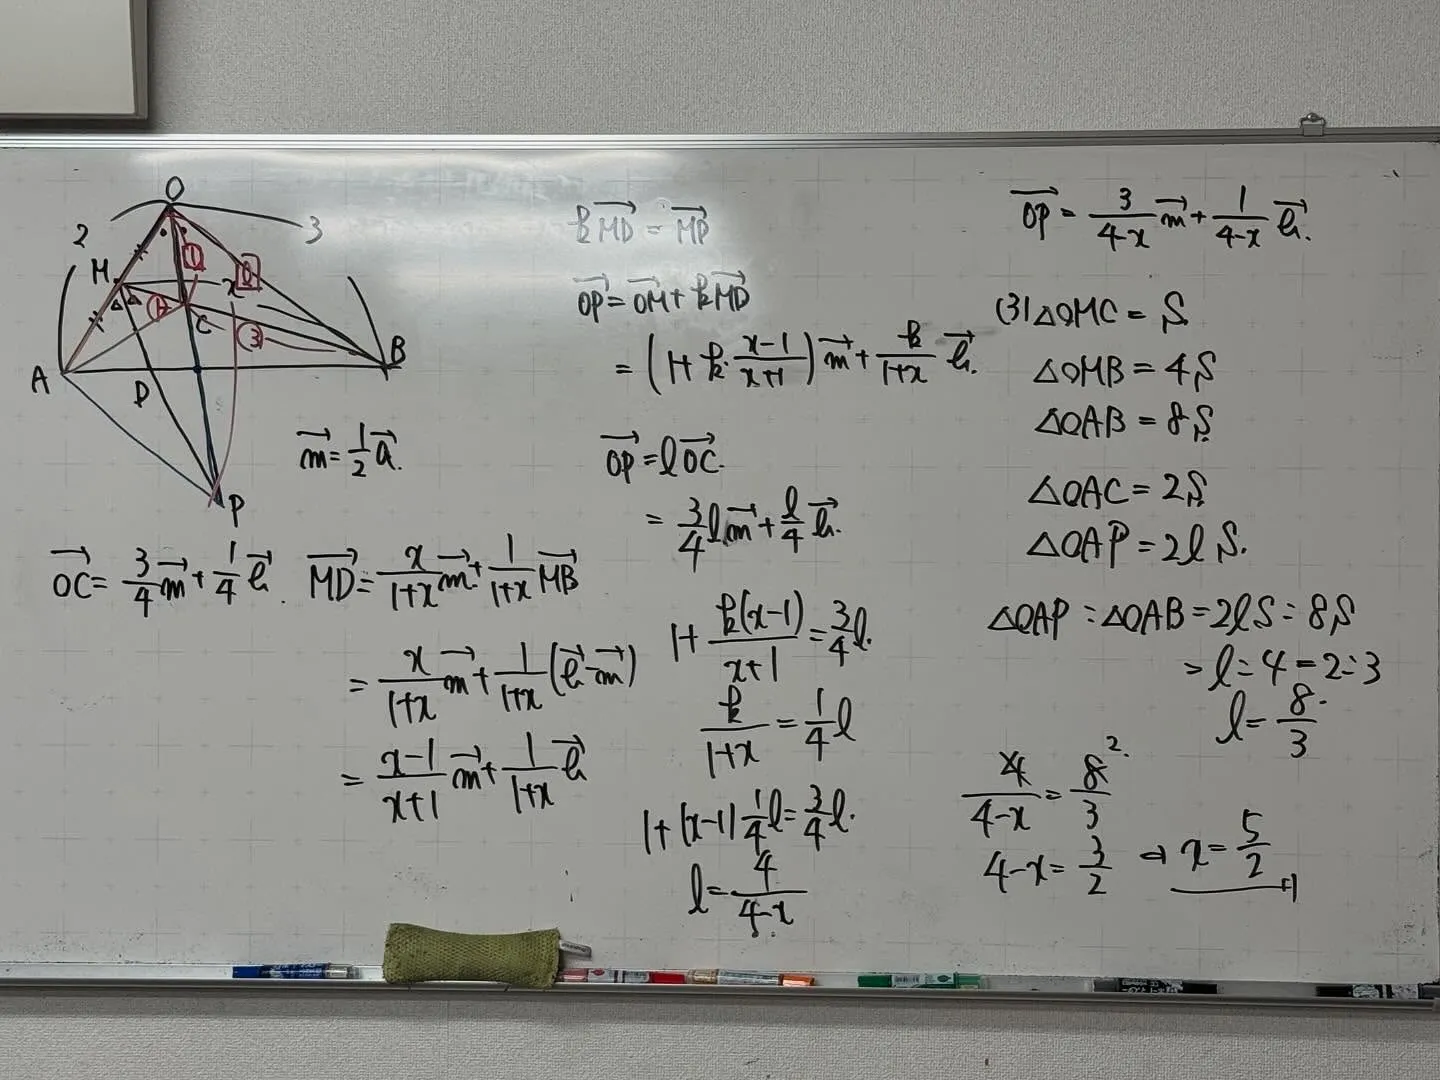 O
2
3
M
x
C
A
B
D
P
①
③
1
$\overrightarrow{m} = \frac{1}{2}\overrightarrow{a}.$
$\overrightarrow{OC} = \frac{3}{4}\overrightarrow{m} + \frac{1}{4}\overrightarrow{b}.$
$\overrightarrow{MD} = \frac{x}{1+x}\overrightarrow{m} + \frac{1}{1+x}\overrightarrow{MB}$
$= \frac{x}{1+x}\overrightarrow{m} + \frac{1}{1+x}(\overrightarrow{b} - \overrightarrow{m})$
$= \frac{x-1}{x+1}\overrightarrow{m} + \frac{1}{1+x}\overrightarrow{b}$
$k\overrightarrow{MD} = \overrightarrow{MP}$
$\overrightarrow{OP} = \overrightarrow{OM} + k\overrightarrow{MD}$
$= \left(1 + k \cdot \frac{x-1}{x+1}\right)\overrightarrow{m} + \frac{k}{1+x}\overrightarrow{b}.$
$\overrightarrow{OP} = l\overrightarrow{OC}.$
$= \frac{3}{4}l\overrightarrow{m} + \frac{l}{4}\overrightarrow{b}.$
$1 + \frac{k(x-1)}{x+1} = \frac{3}{4}l.$
$\frac{k}{1+x} = \frac{1}{4}l$
$1 + (x-1)\frac{1}{4}l = \frac{3}{4}l.$
$l = \frac{4}{4-x}$
$\overrightarrow{OP} = \frac{3}{4-x}\overrightarrow{m} + \frac{1}{4-x}\overrightarrow{b}.$
(3) △OMC = S
△OMB = 4S
△OAB = 8S
△OAC = 2S
△OAP = 2lS.
△OAP : △OAB = 2lS : 8S
= l : 4 = 2 : 3
$l = \frac{8}{3}.$
$\frac{4}{4-x} = \frac{8}{3}$ 2.
$4-x = \frac{3}{2}$ ⇒ $x = \frac{5}{2}$